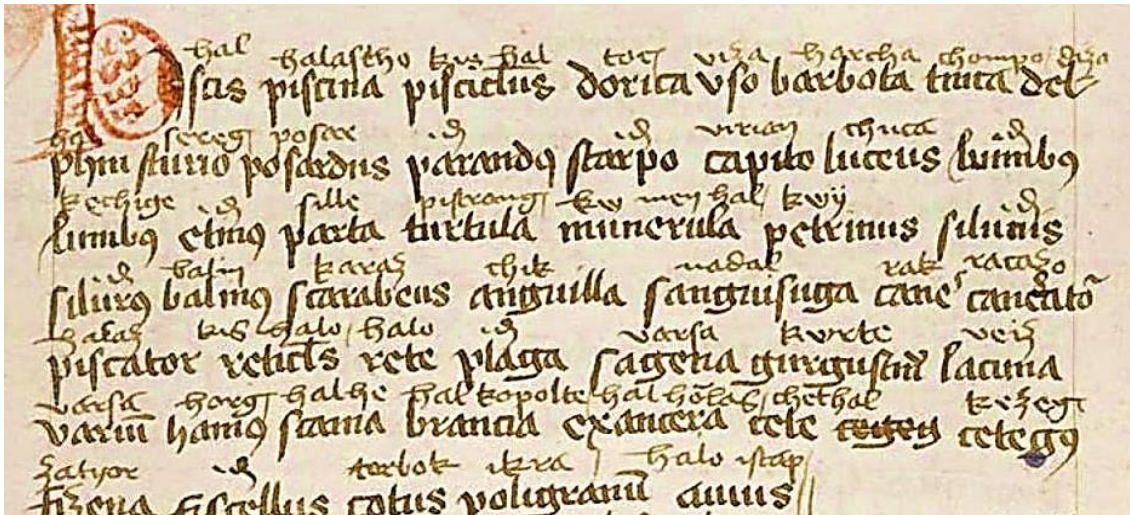 hal halastho kis hal tok viza harcha chompo
piscis piscina pisciclus dorica uso barbota tinca del
sereg posar id id virian chuca id
phin sturio posardus parandus scarpo capito luceus lumbus
kechige id sille pistrong kw men hal kwy id
lumbus etinus parta turtula munerula petrinus silurus
id balin karaz chik nadal rak racazo
silurus balinus scarabeus anguilla sanguisuga cancer cancerator
halaz kis halo halo id varsa kurte veiz
piscator reticls rete plaga sagena gurgustium lacuna
varsa horog halhe hal kopolte hal holas chethal kezeg
varium hamus scama brancia exancera cete cetegus
zatyor id torbok ikra halo istap
fizena fiscellus cotus poligranum amius